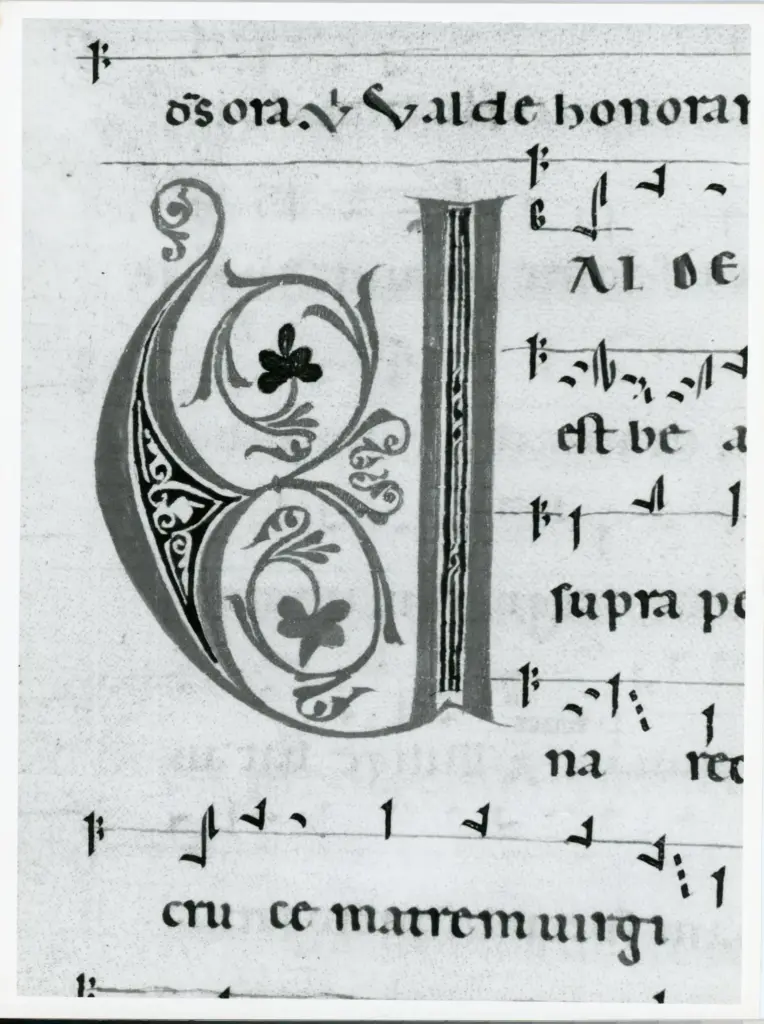 ds ora. ℣ Valde honoran
VALDE
est be a
supra pe
na rec
cru ce matrem uirgi